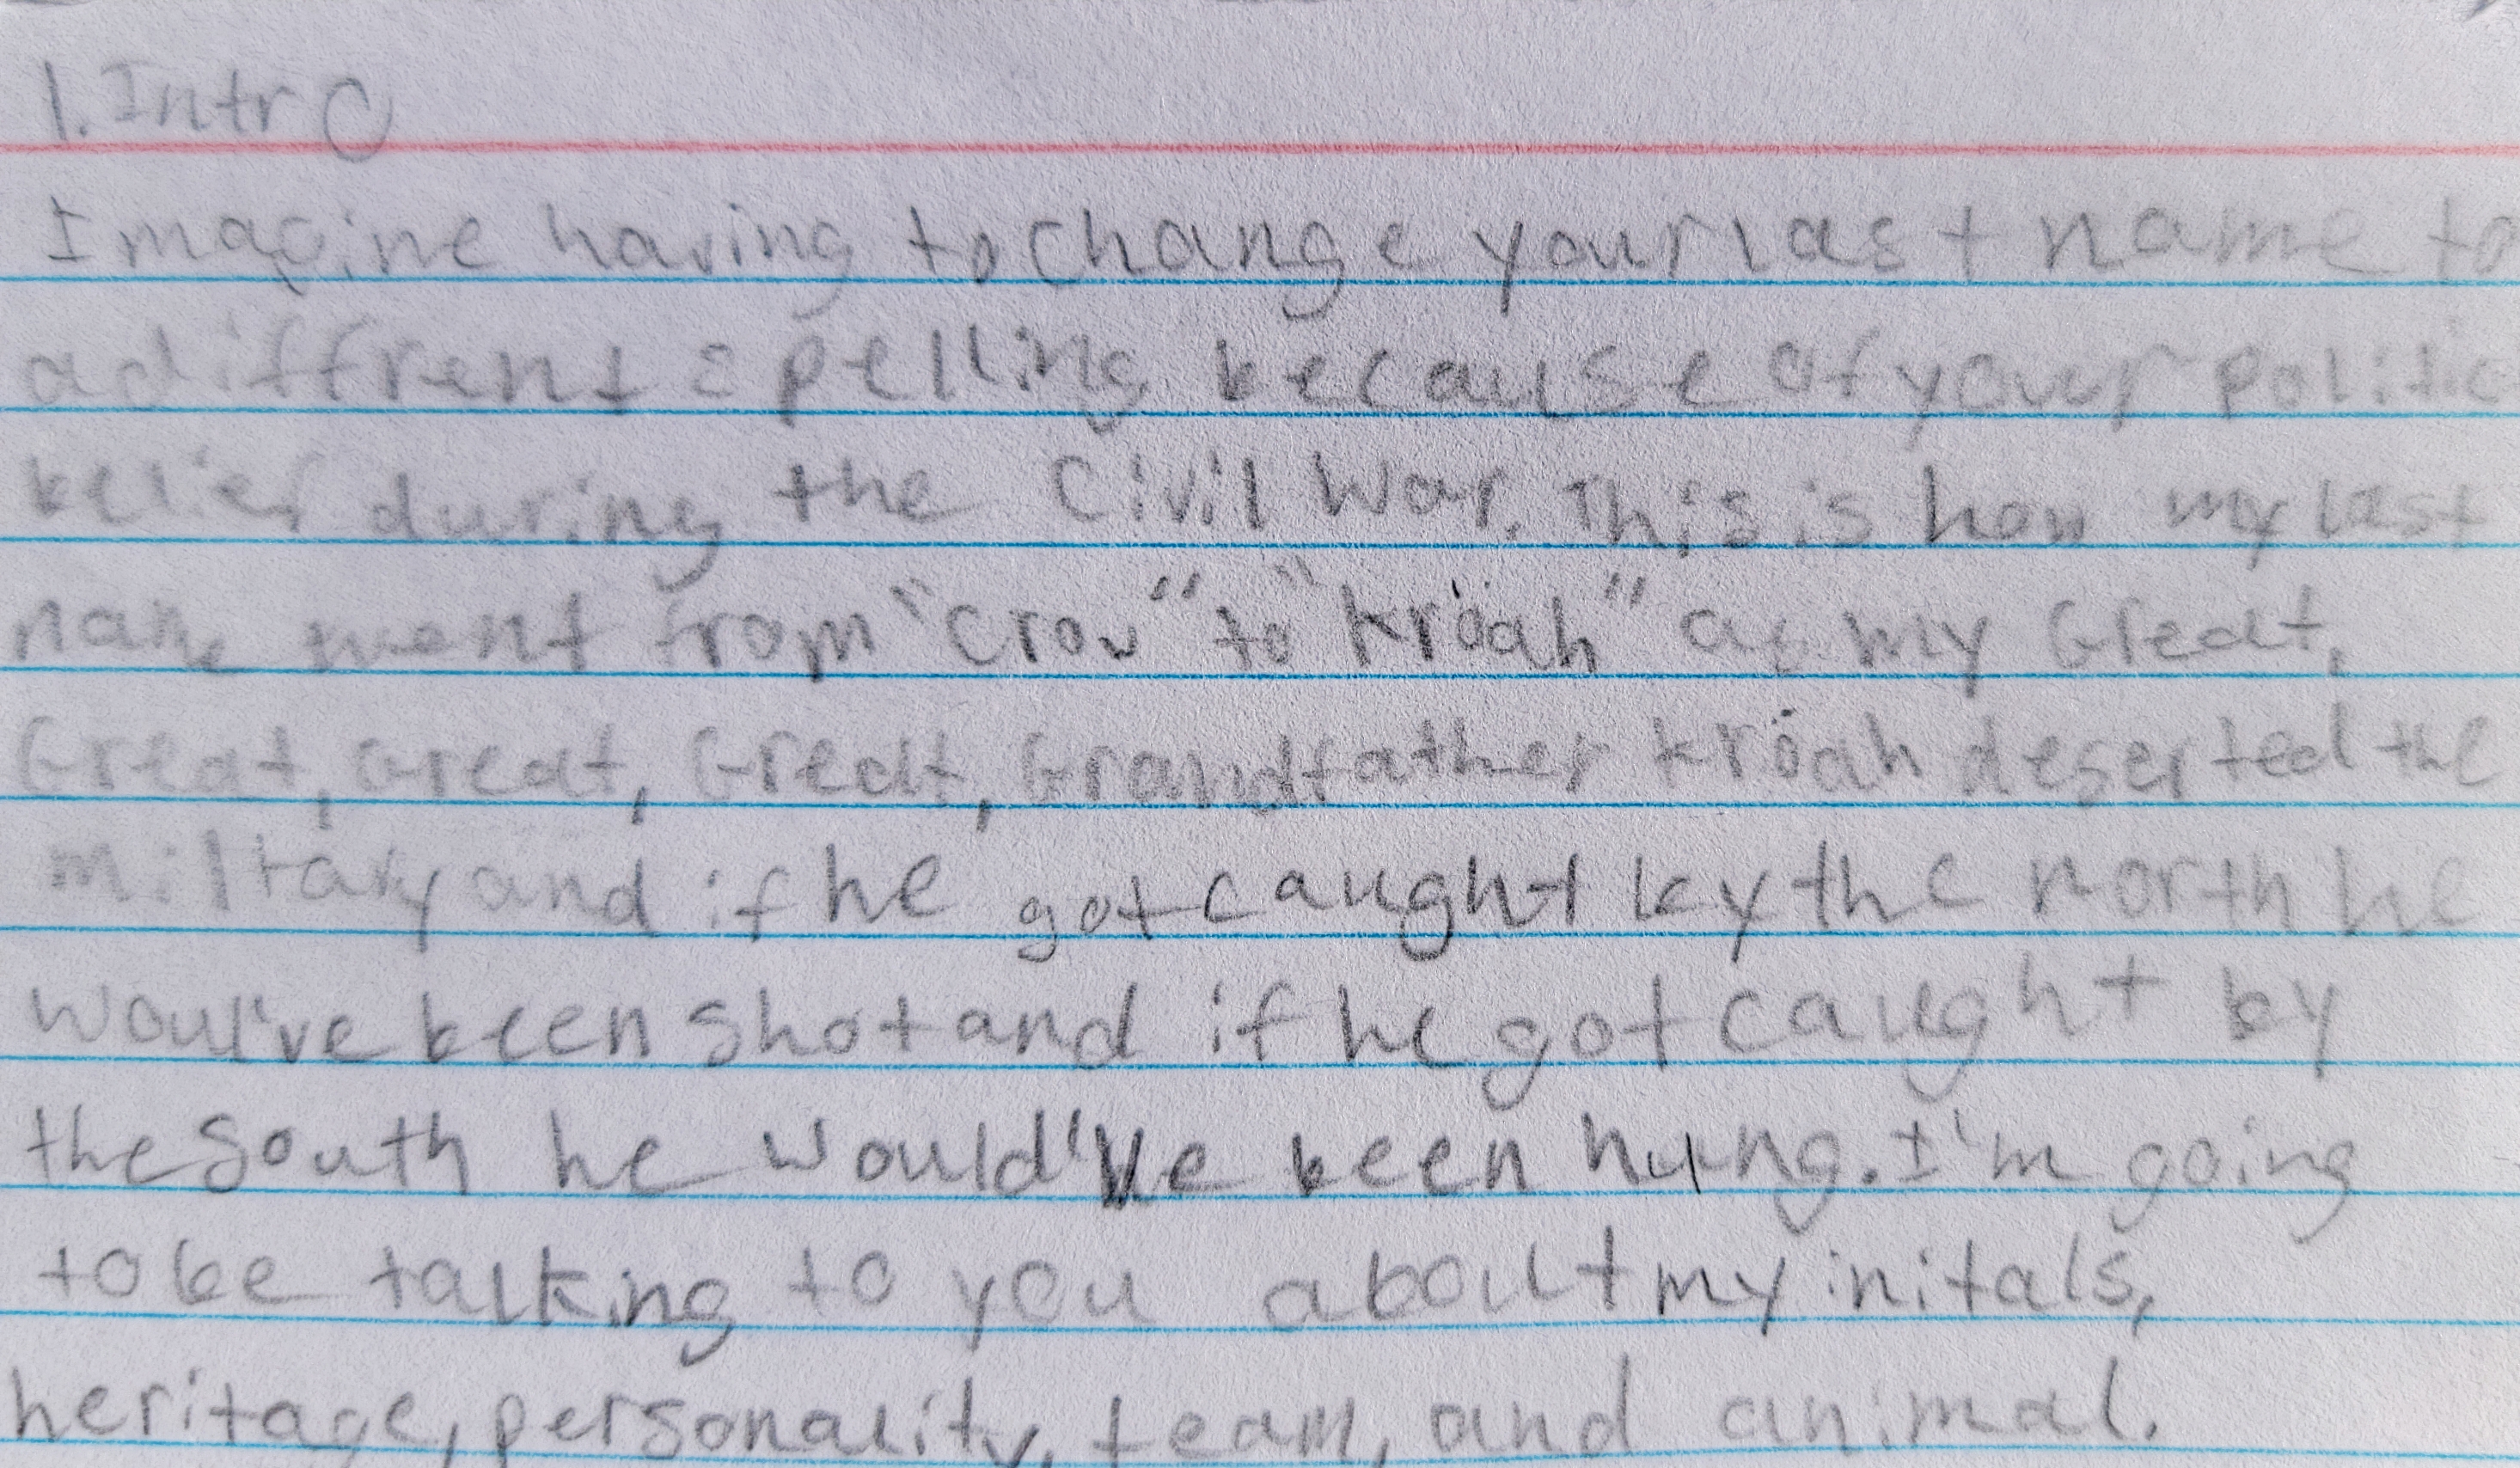 1. Intro
Imagine having to change your last name to
a diffrent spelling because of your politic
belief during the Civil War. This is how my last
name went from "Crow" to "Kröah" as my Great,
Great, Great, Great, Grandfather Kröah deserted the
miltary and if he got caught by the north he
woul've been shot and if he got caught by
the South he would've been hung. I'm going
to be talking to you about my initals,
heritage, personality, team, and animal.